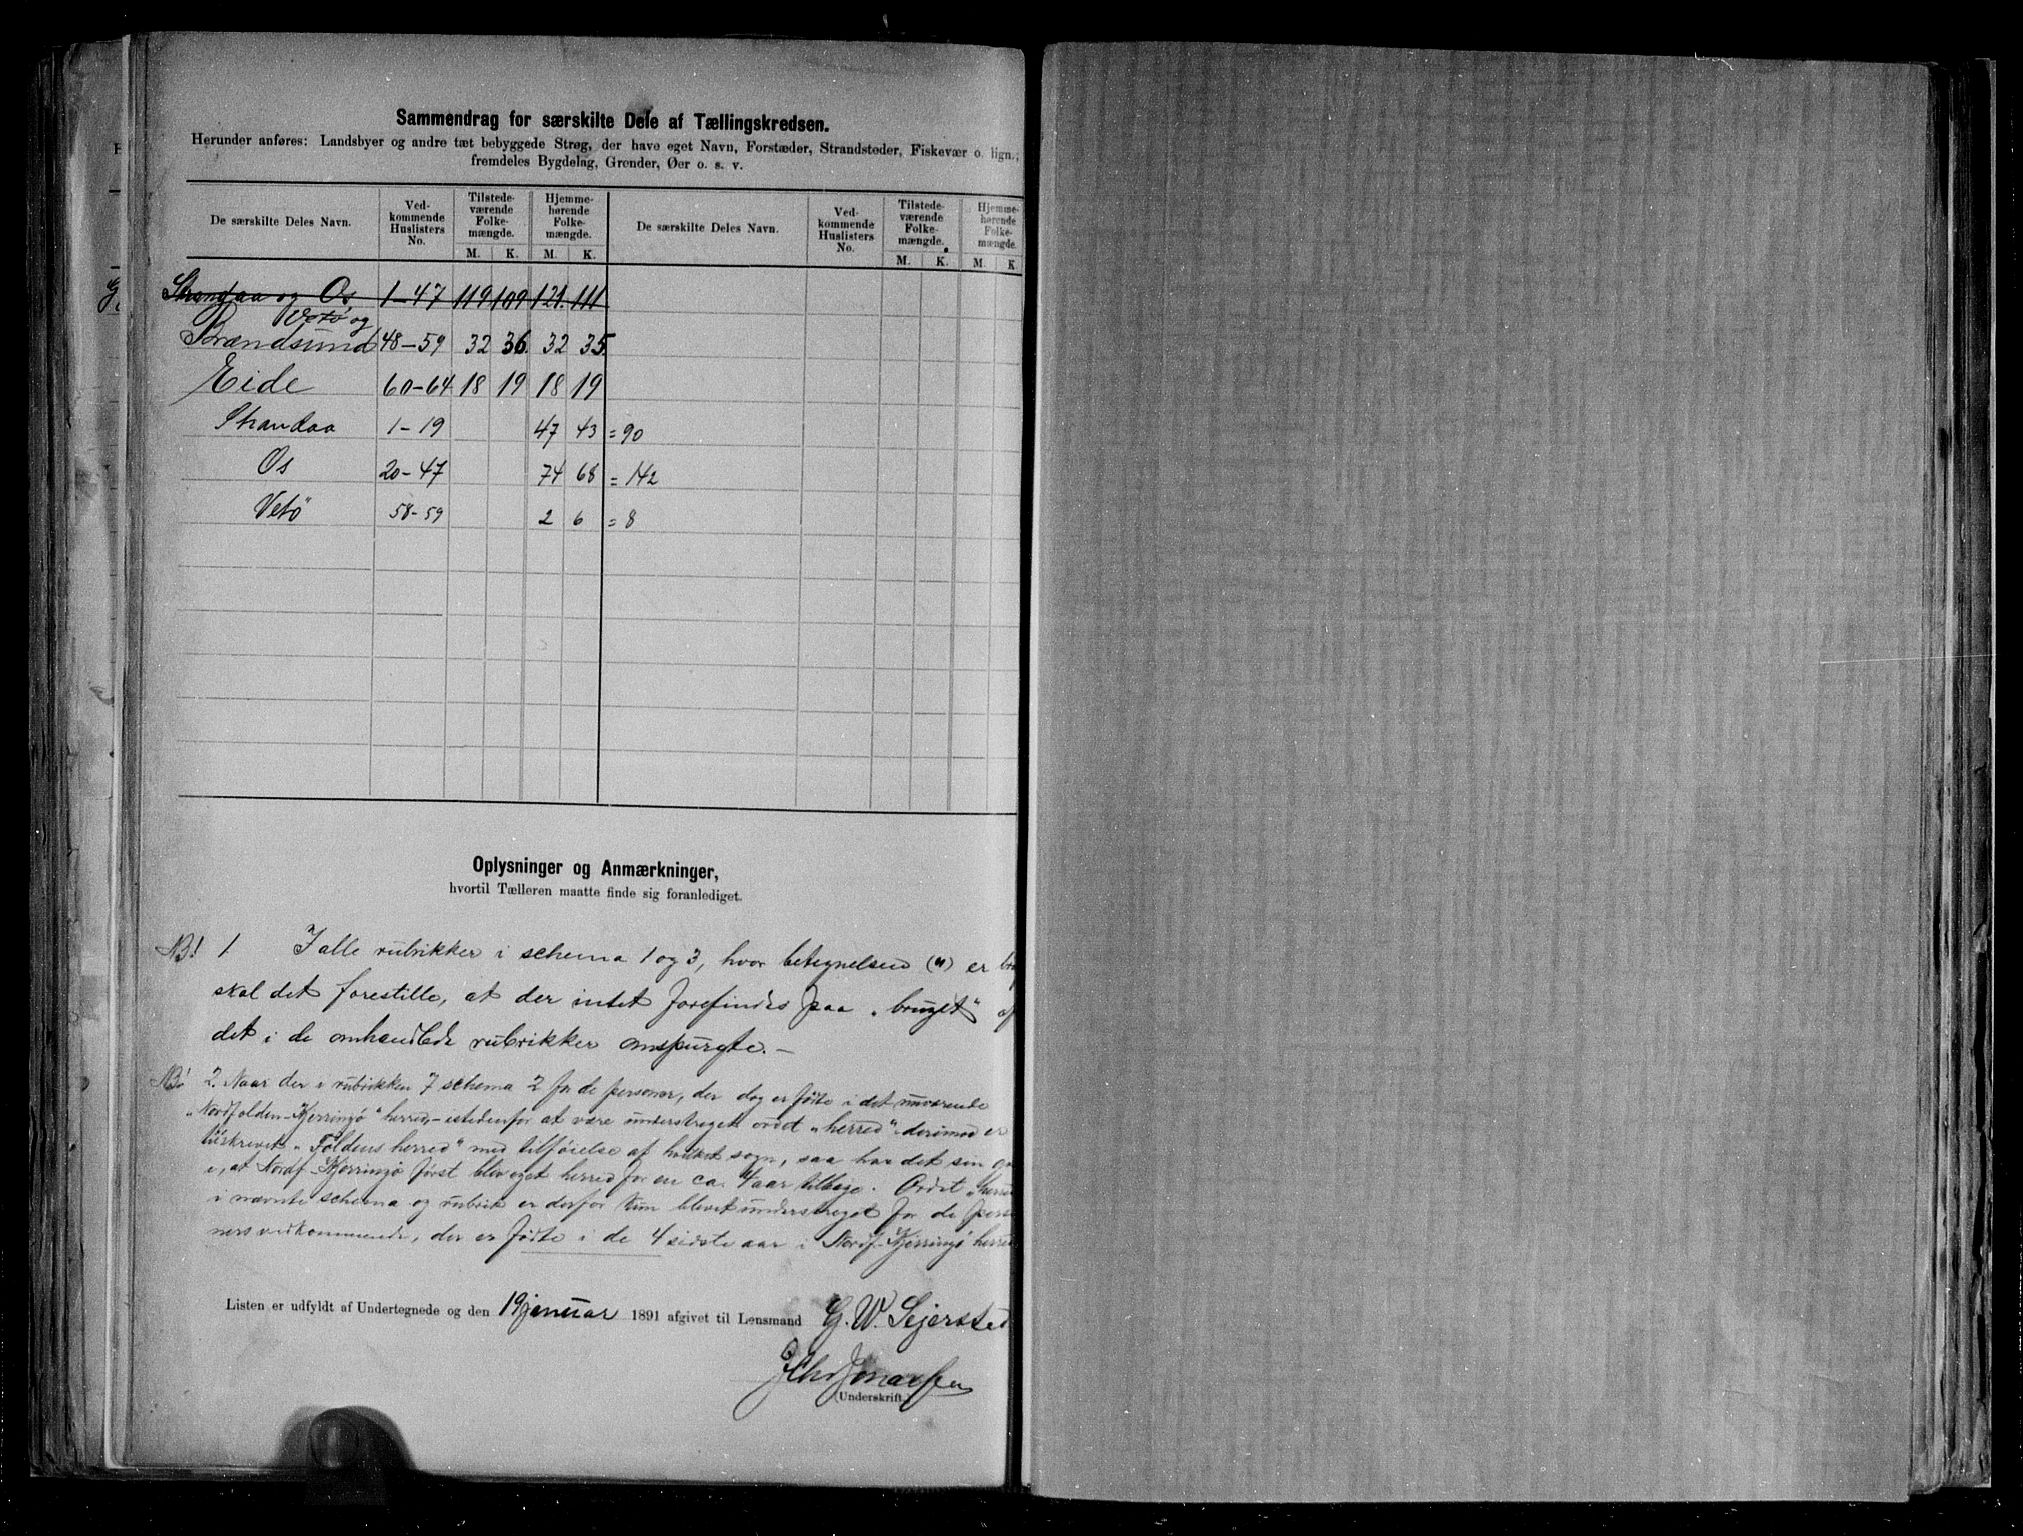 Sammendrag for særskilte Dele af Tællingskredsen.
Herunder anføres: Landsbyer og andre tæt bebyggede Strøg, der have eget Navn, Forstæder, Strandsteder, Fiskevær o. lign.;
fremdeles Bygdelag, Grender, Øer o. s. v.
De særskilte Deles Navn. Ved-kommende Huslisters No. Tilstede-værende Folke-mængde. M. K. Hjemme-hørende Folke-mængde. M. K. De særskilte Deles Navn. Ved-kommende Huslisters No. Tilstede-værende Folke-mængde. M. K. Hjemme-hørende Folke-mængde. M. K.
Strandaa og Os 1-47 119 109 121 111
Vetö og
Brændsund 48-59 32 36 32 35
Eide 60-64 18 19 18 19
Strandaa 1-19 47 43 = 90
Os 20-47 74 68 = 142
Vetö 58-59 2 6 = 8
Oplysninger og Anmærkninger,
hvortil Tælleren maatte finde sig foranlediget.
NB! 1 I alle rubrikker i schema 1 og 3, hvor betegnelsen (") er
skal det forestille, at der intet forefindes paa "bruget" af
det i de omhandlede rubrikker omspurgte.-
NB! 2. Naar der i rubrikken 7 schema 2 for de personer, der dog er fødte i det nuværende
"Nordfolden-Kjerringø" herred,- istedenfor at være understreget ordet "herred" derimod er
tilskrevet "Foldens herred" med tilføielse af hvilket sogn, saa har det sin
i, at Nordf-Kjerringø først blev eget herred for en ca. 4 aar tilbage. Ordet "herred
i nævnte schema og rubrik er derfor kun blevet understreget for de
ners vedkommende, der er fødte i de 4 sidste aar i Nordf-Kjerringø herred
Listen er udfyldt af Undertegnede og den 19 januar 1891 afgivet til Lensmand G. W. Sejersted
(Underskrift.)